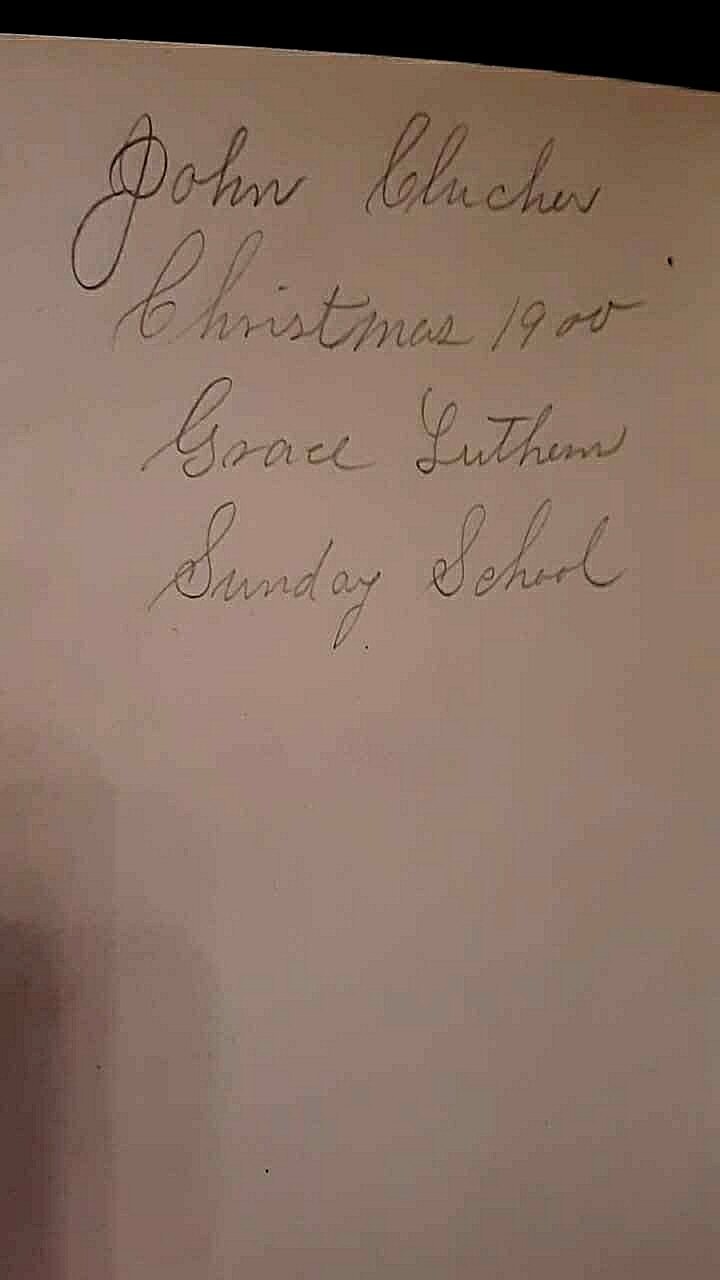 John Clucher
Christmas 1900
Grace Luthern
Sunday School